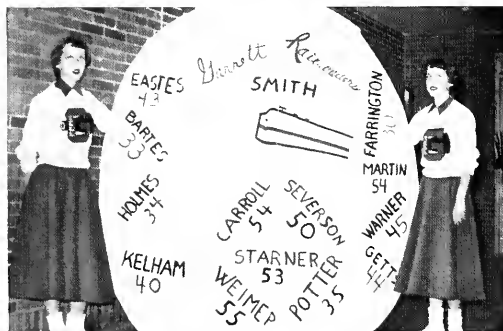 Garrett
SMITH
EASTES
43
BARTES
33
HOLMES
34
KELHAM
40
CARROLL
54
SEVERSON
50
STARNER
53
WEIMER
55
POTTER
35
FARRINGTON
MARTIN
54
WARNER
45
GETT
44
G
G